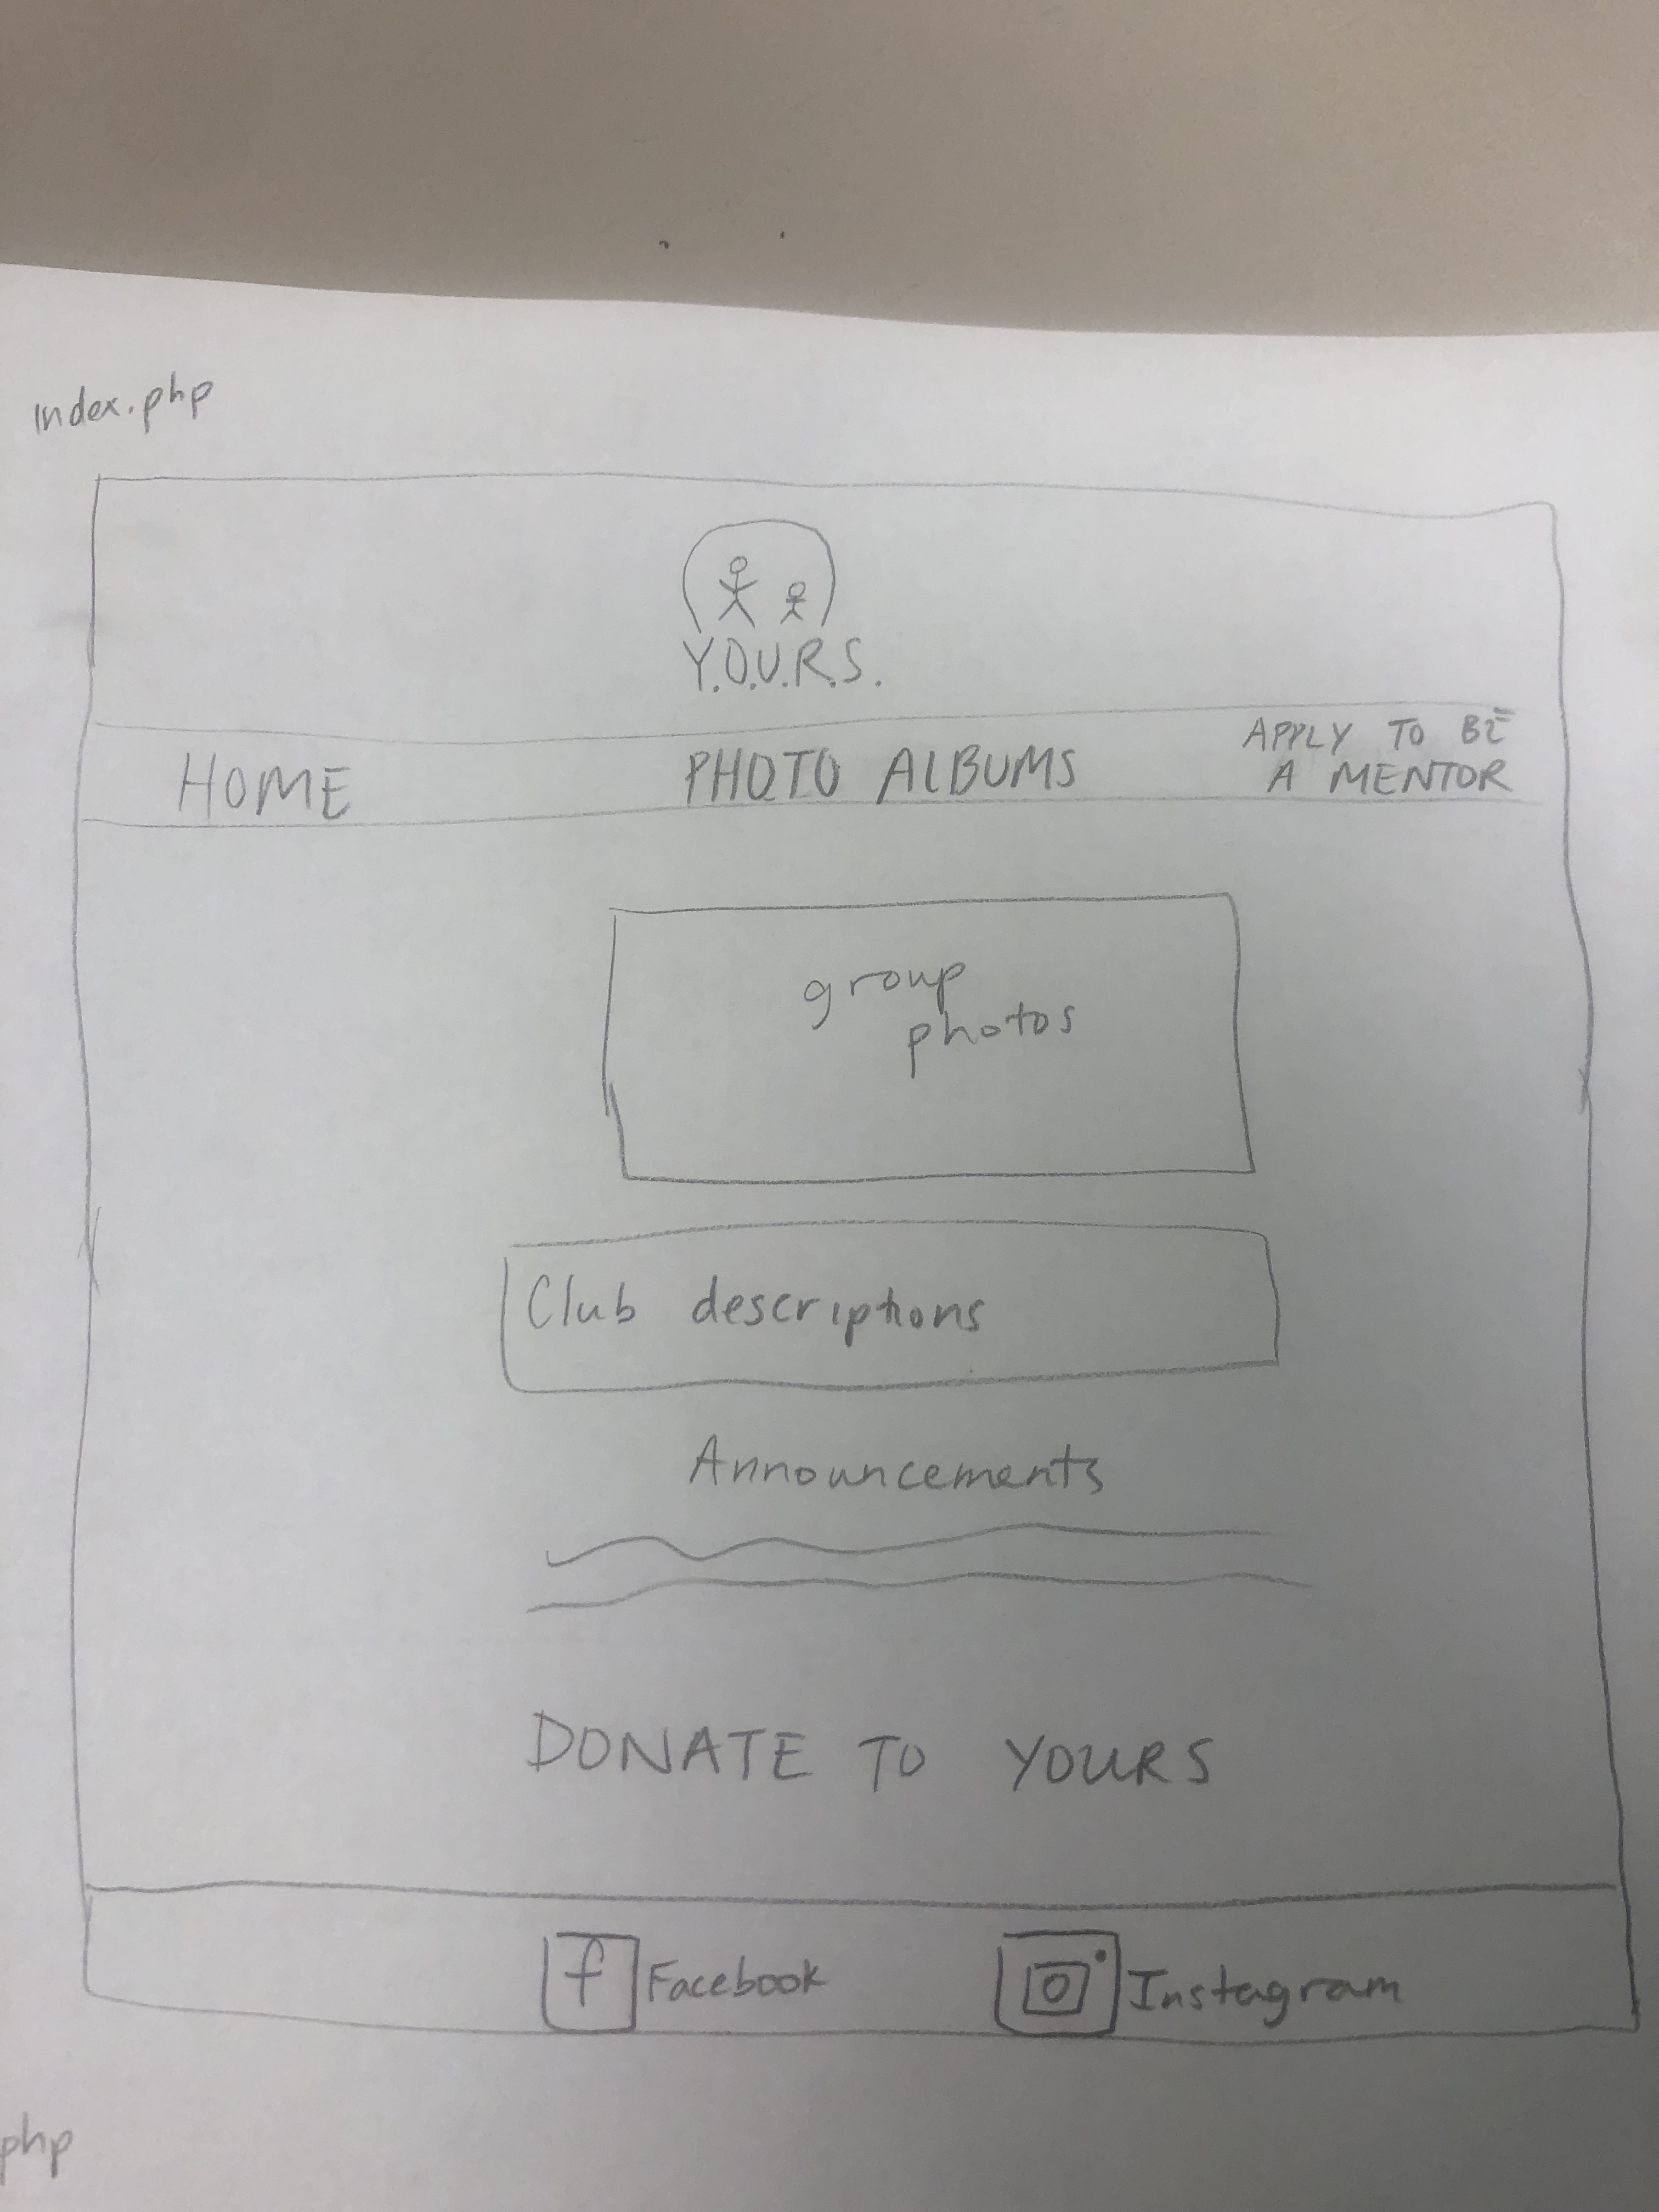 Index.php
Y.O.U.R.S.
HOME PHOTO ALBUMS APPLY TO BE
A MENTOR
group
photos
Club descriptions
Announcements
DONATE TO YOURS
f Facebook Instagram
php